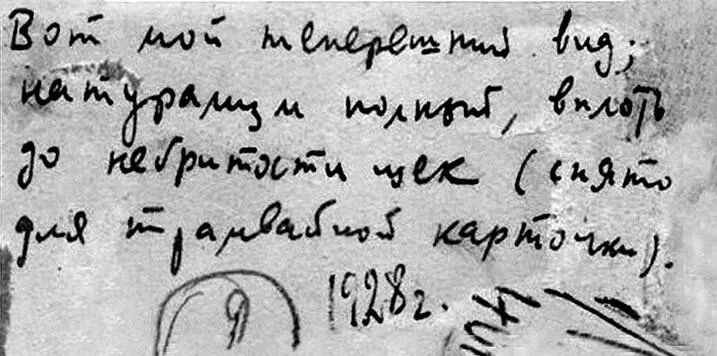 Вот мой теперешний вид;
натурализм полный, вплоть
до небритости щек (снято
для трамвайной карточки).
1928 г.